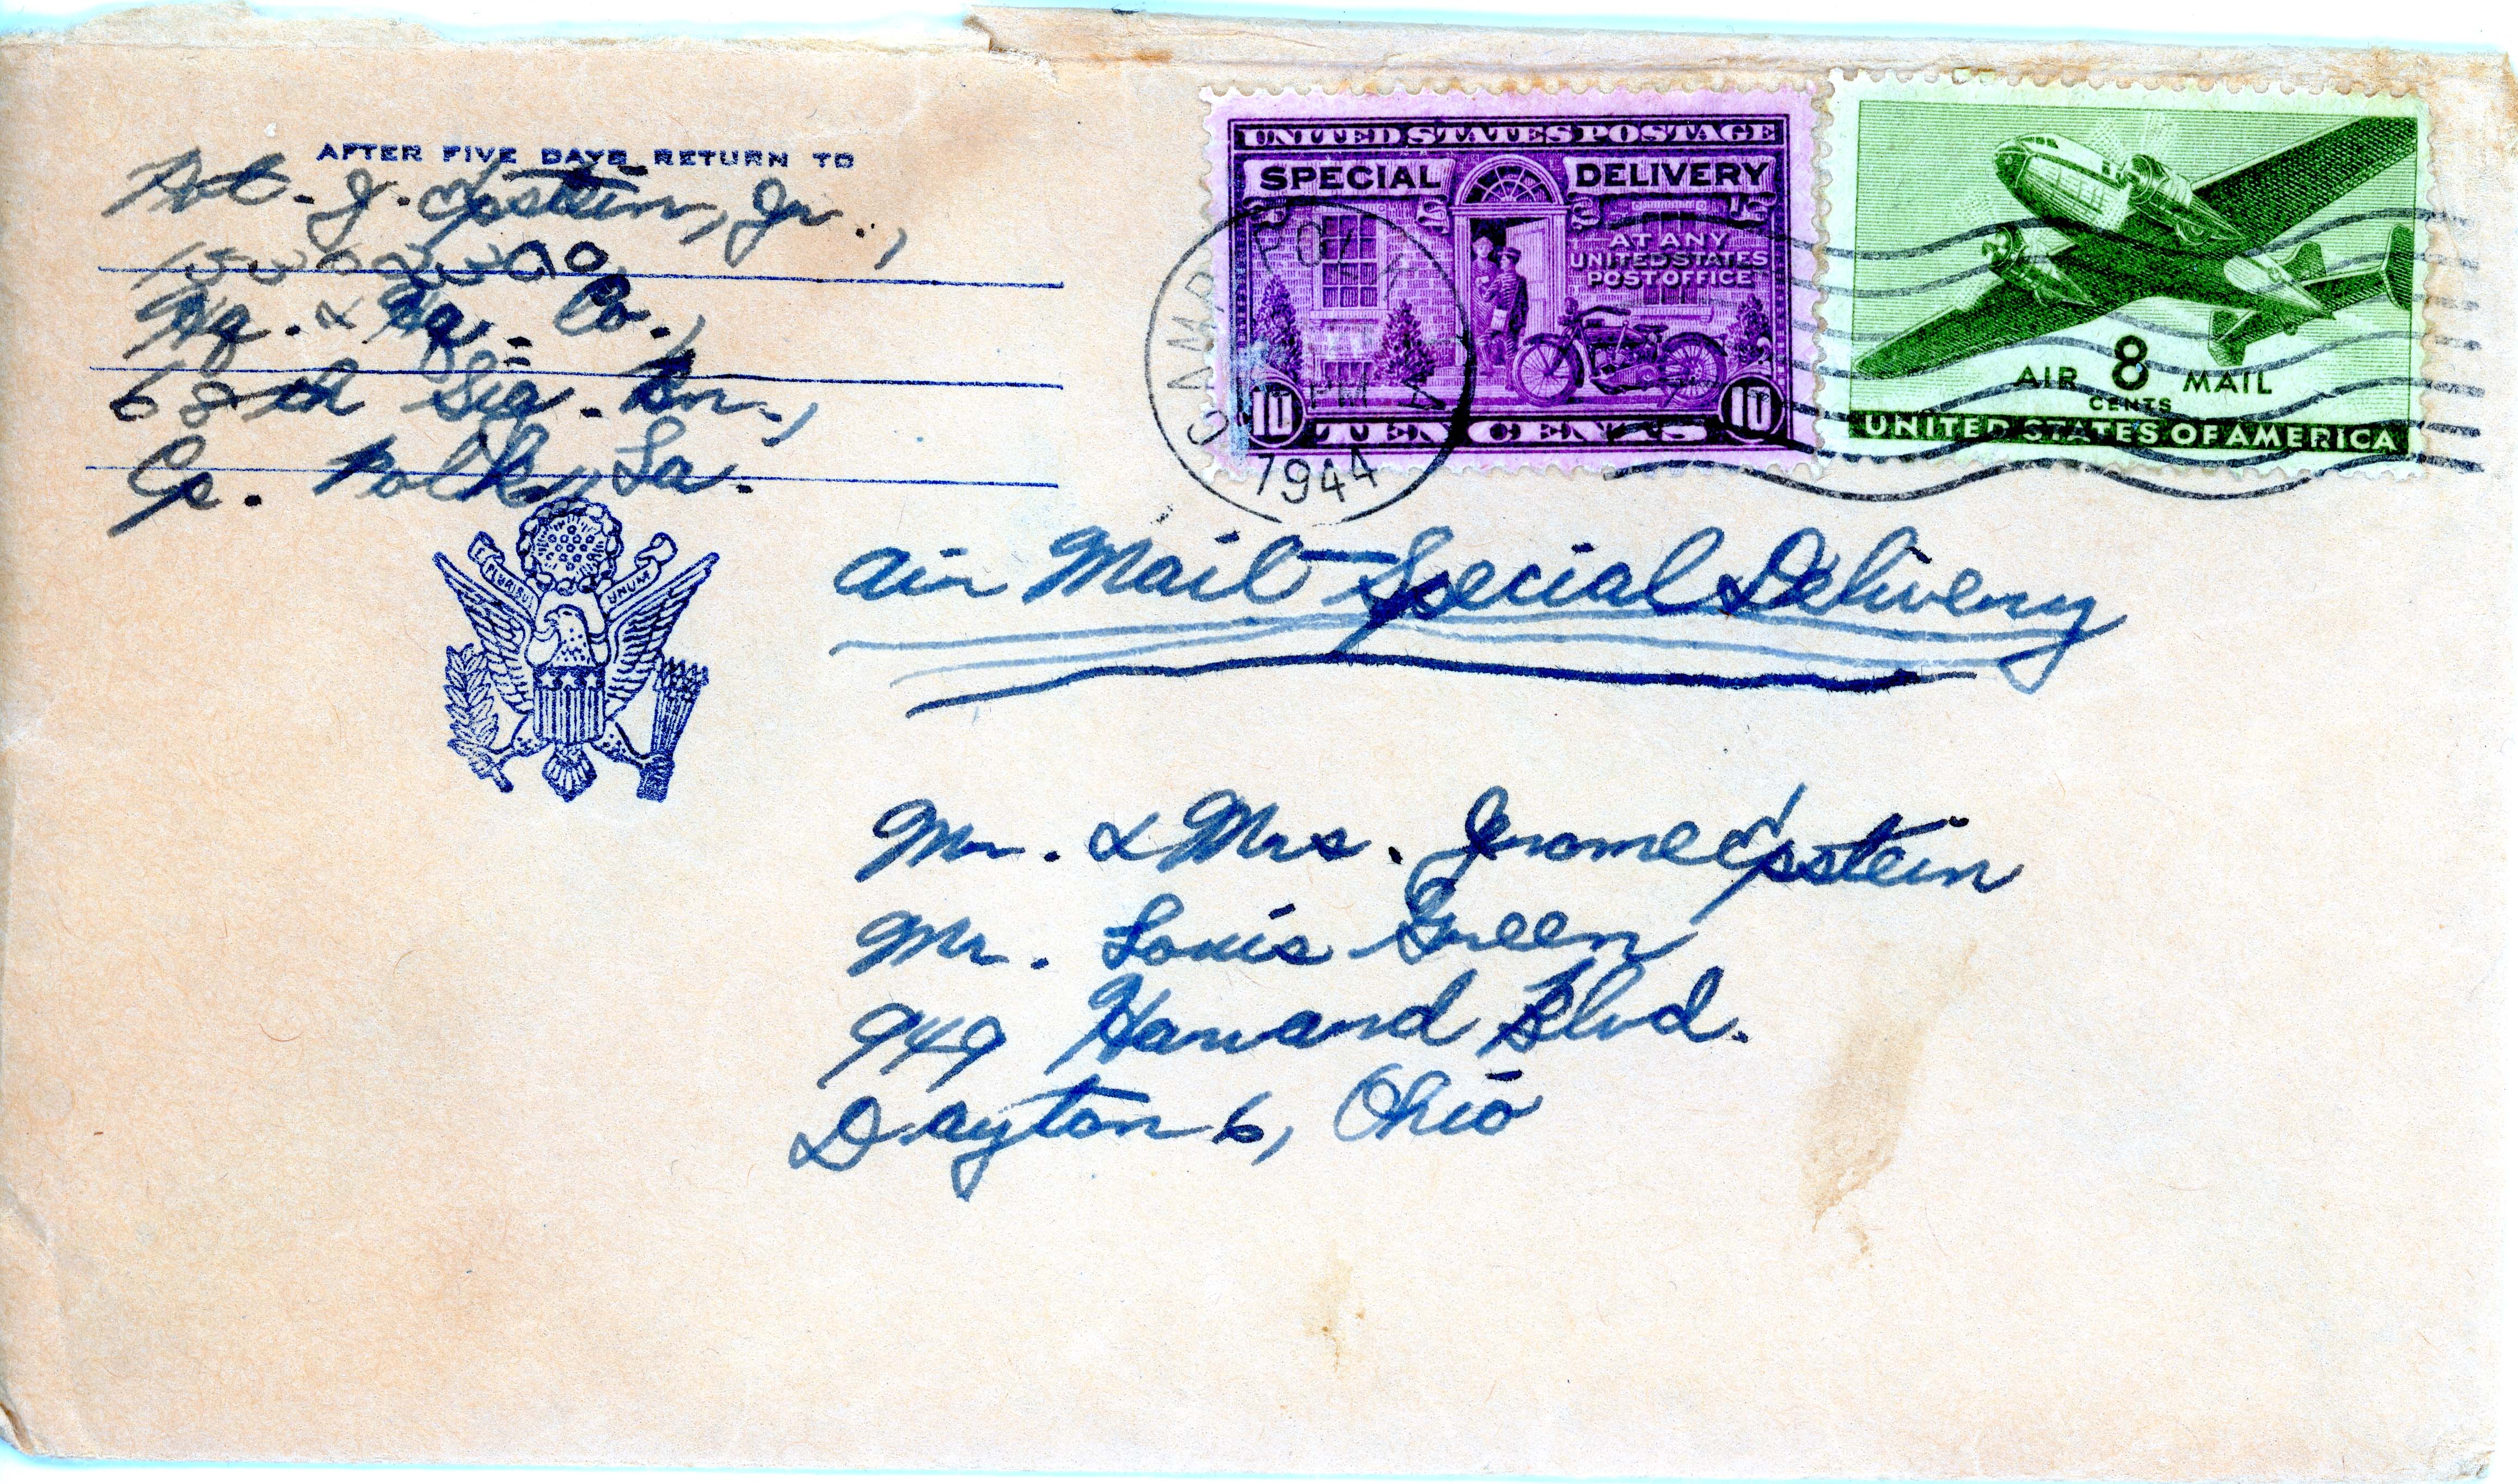 AFTER FIVE DAYS RETURN TO
Pvt. J. Epstein, Jr.,
Hq. & Hq. Co.,
68th Sig. Bn.,
Cp. Polk, La.
E PLURIBUS UNUM
UNITED STATES POSTAGE
SPECIAL DELIVERY
AT ANY
UNITED STATES
POST OFFICE
10 TEN CENTS 10
CAMP POLK
PM
1944
AIR 8 MAIL
CENTS
UNITED STATES OF AMERICA
Air Mail-Special Delivery
Mr. & Mrs. Jerome Epstein
Mr. Louis Green
949 Harvard Blvd.
Dayton 6, Ohio